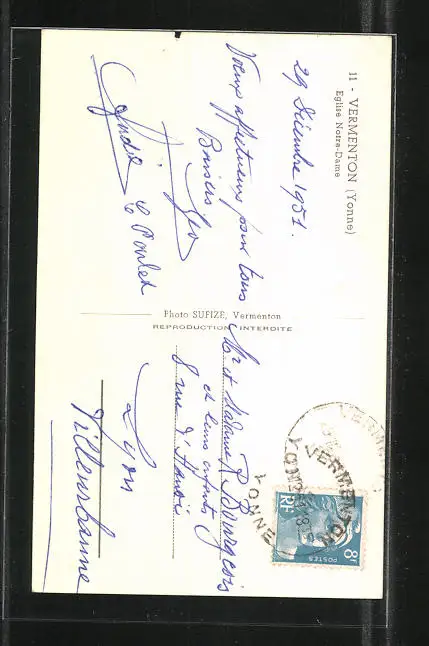 11 - VERMENTON (Yonne)
Eglise Notre-Dame
29 Décembre 1951.
Voeux affectueux pour tous
Baisers
Geo
André
Photo SUFIZE, Vermenton
REPRODUCTION INTERDITE
Mr et Madame R. Bourgeois
et leurs enfants
8 rue d'Hanoï
Lyon
Villeurbanne
VERMENTON
YONNE
RF
POSTES
8F